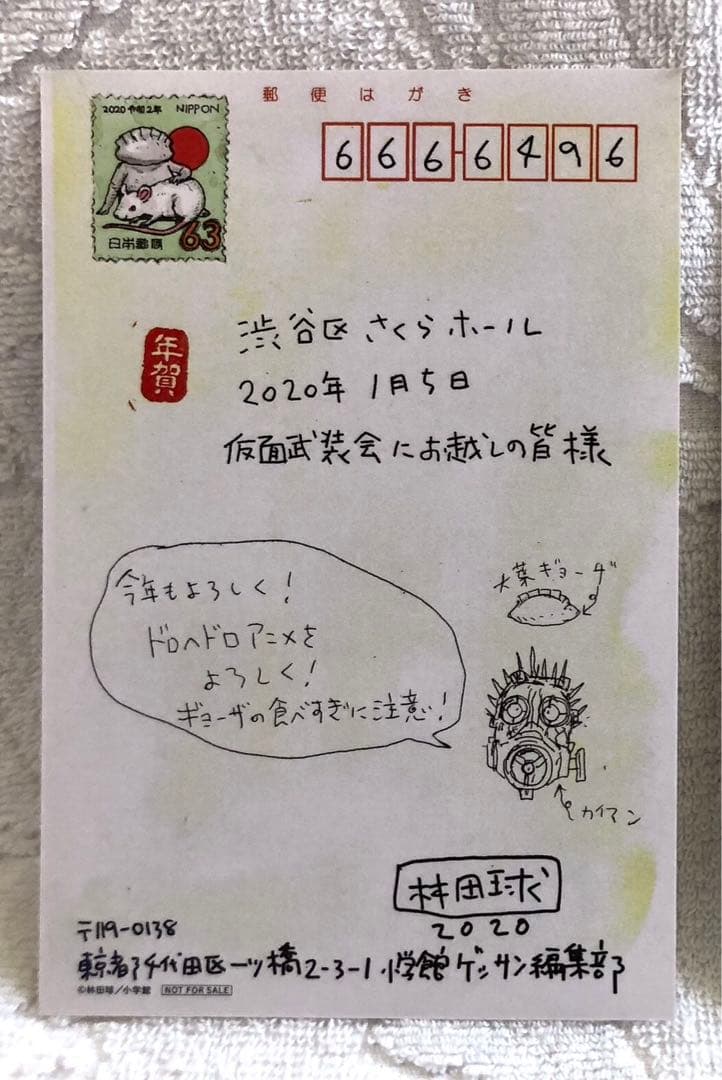 郵便はがき
2020 令和2年 NIPPON
63
日本郵便
666-6496
年賀
渋谷区 さくらホール
2020年 1月5日
仮面武装会にお越しの皆様
今年もよろしく!
ドロヘドロアニメを
よろしく!
ギョーザの食べすぎに注意!
大葉ギョーザ
カイマン
林田球
2020
〒119-0138
東京都千代田区一ツ橋2-3-1 小学館ゲッサン編集部
©林田球/小学館 NOT FOR SALE